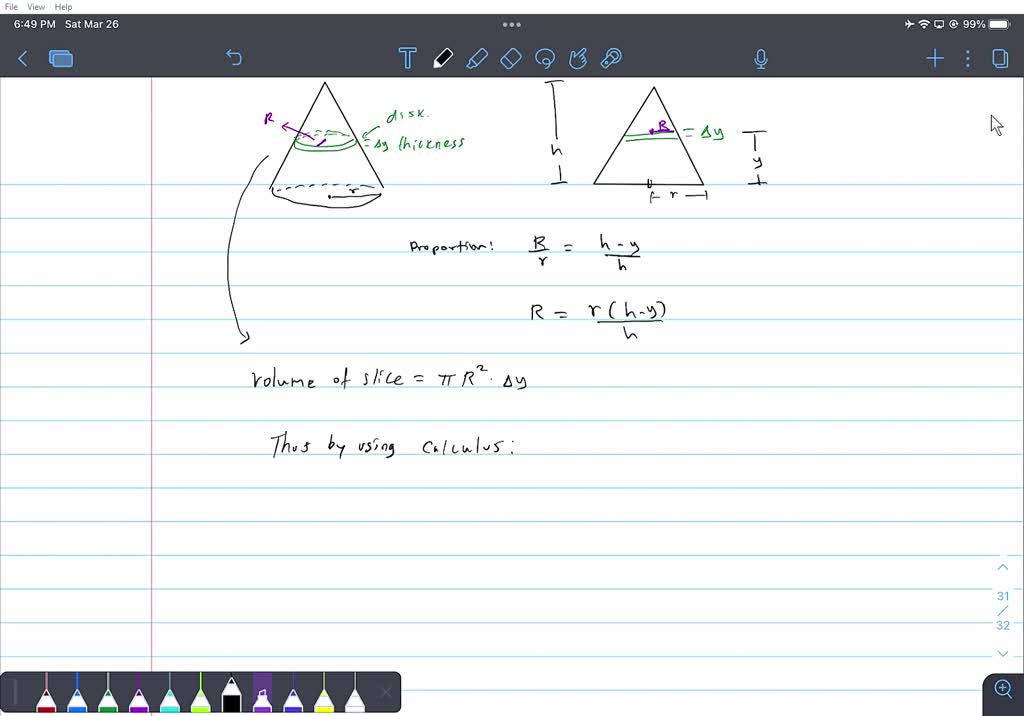 File View Help
6:49 PM Sat Mar 26
99%
T
R
disk.
= Δy thickness
r
h
R
= Δy
y
r
Proportion: R/r = h-y/h
R = r(h-y)/h
Volume of slice = πR²·Δy
Thus by using calculus:
31
/
32